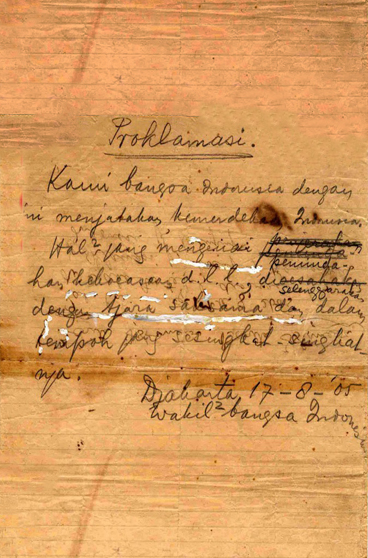 Proklamasi.
Kami bangsa Indonesia dengan
ini menjatakan kemerdekaan Indonesia.
Hal² jang mengenai
peminda-
han kekoeasaan d.l.l., di
selenggarakan
dengan tjara saksama dan dalam
tempoh jang sesingkat-singkat-
nja.
Djakarta, 17 - 8 - '05
Wakil² bangsa Indonesia